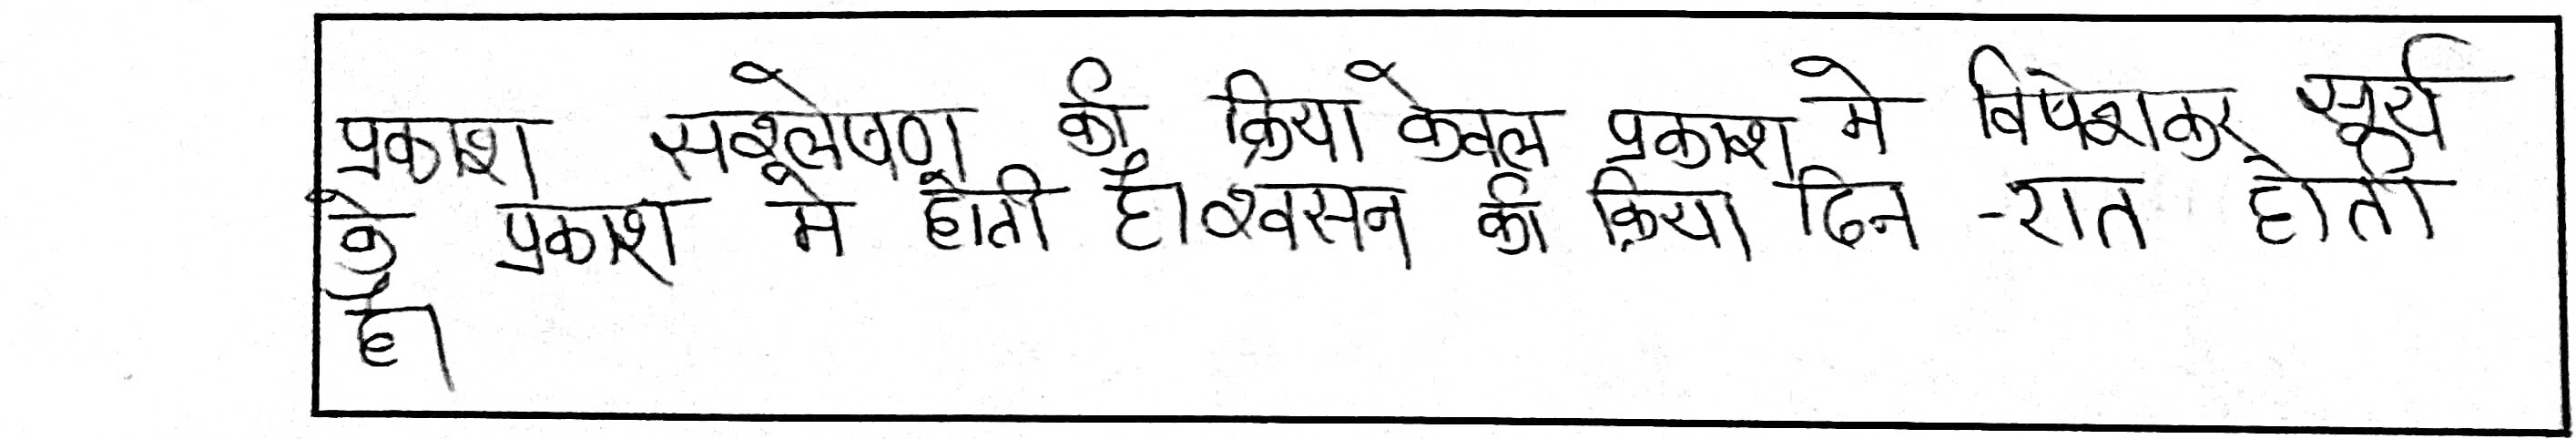 प्रकाश सश्लेषण की क्रिया केवल प्रकाश मे विषेशकर सूर्य
के प्रकाश मे होती है। श्वसन की क्रिया दिन -रात होती
है।